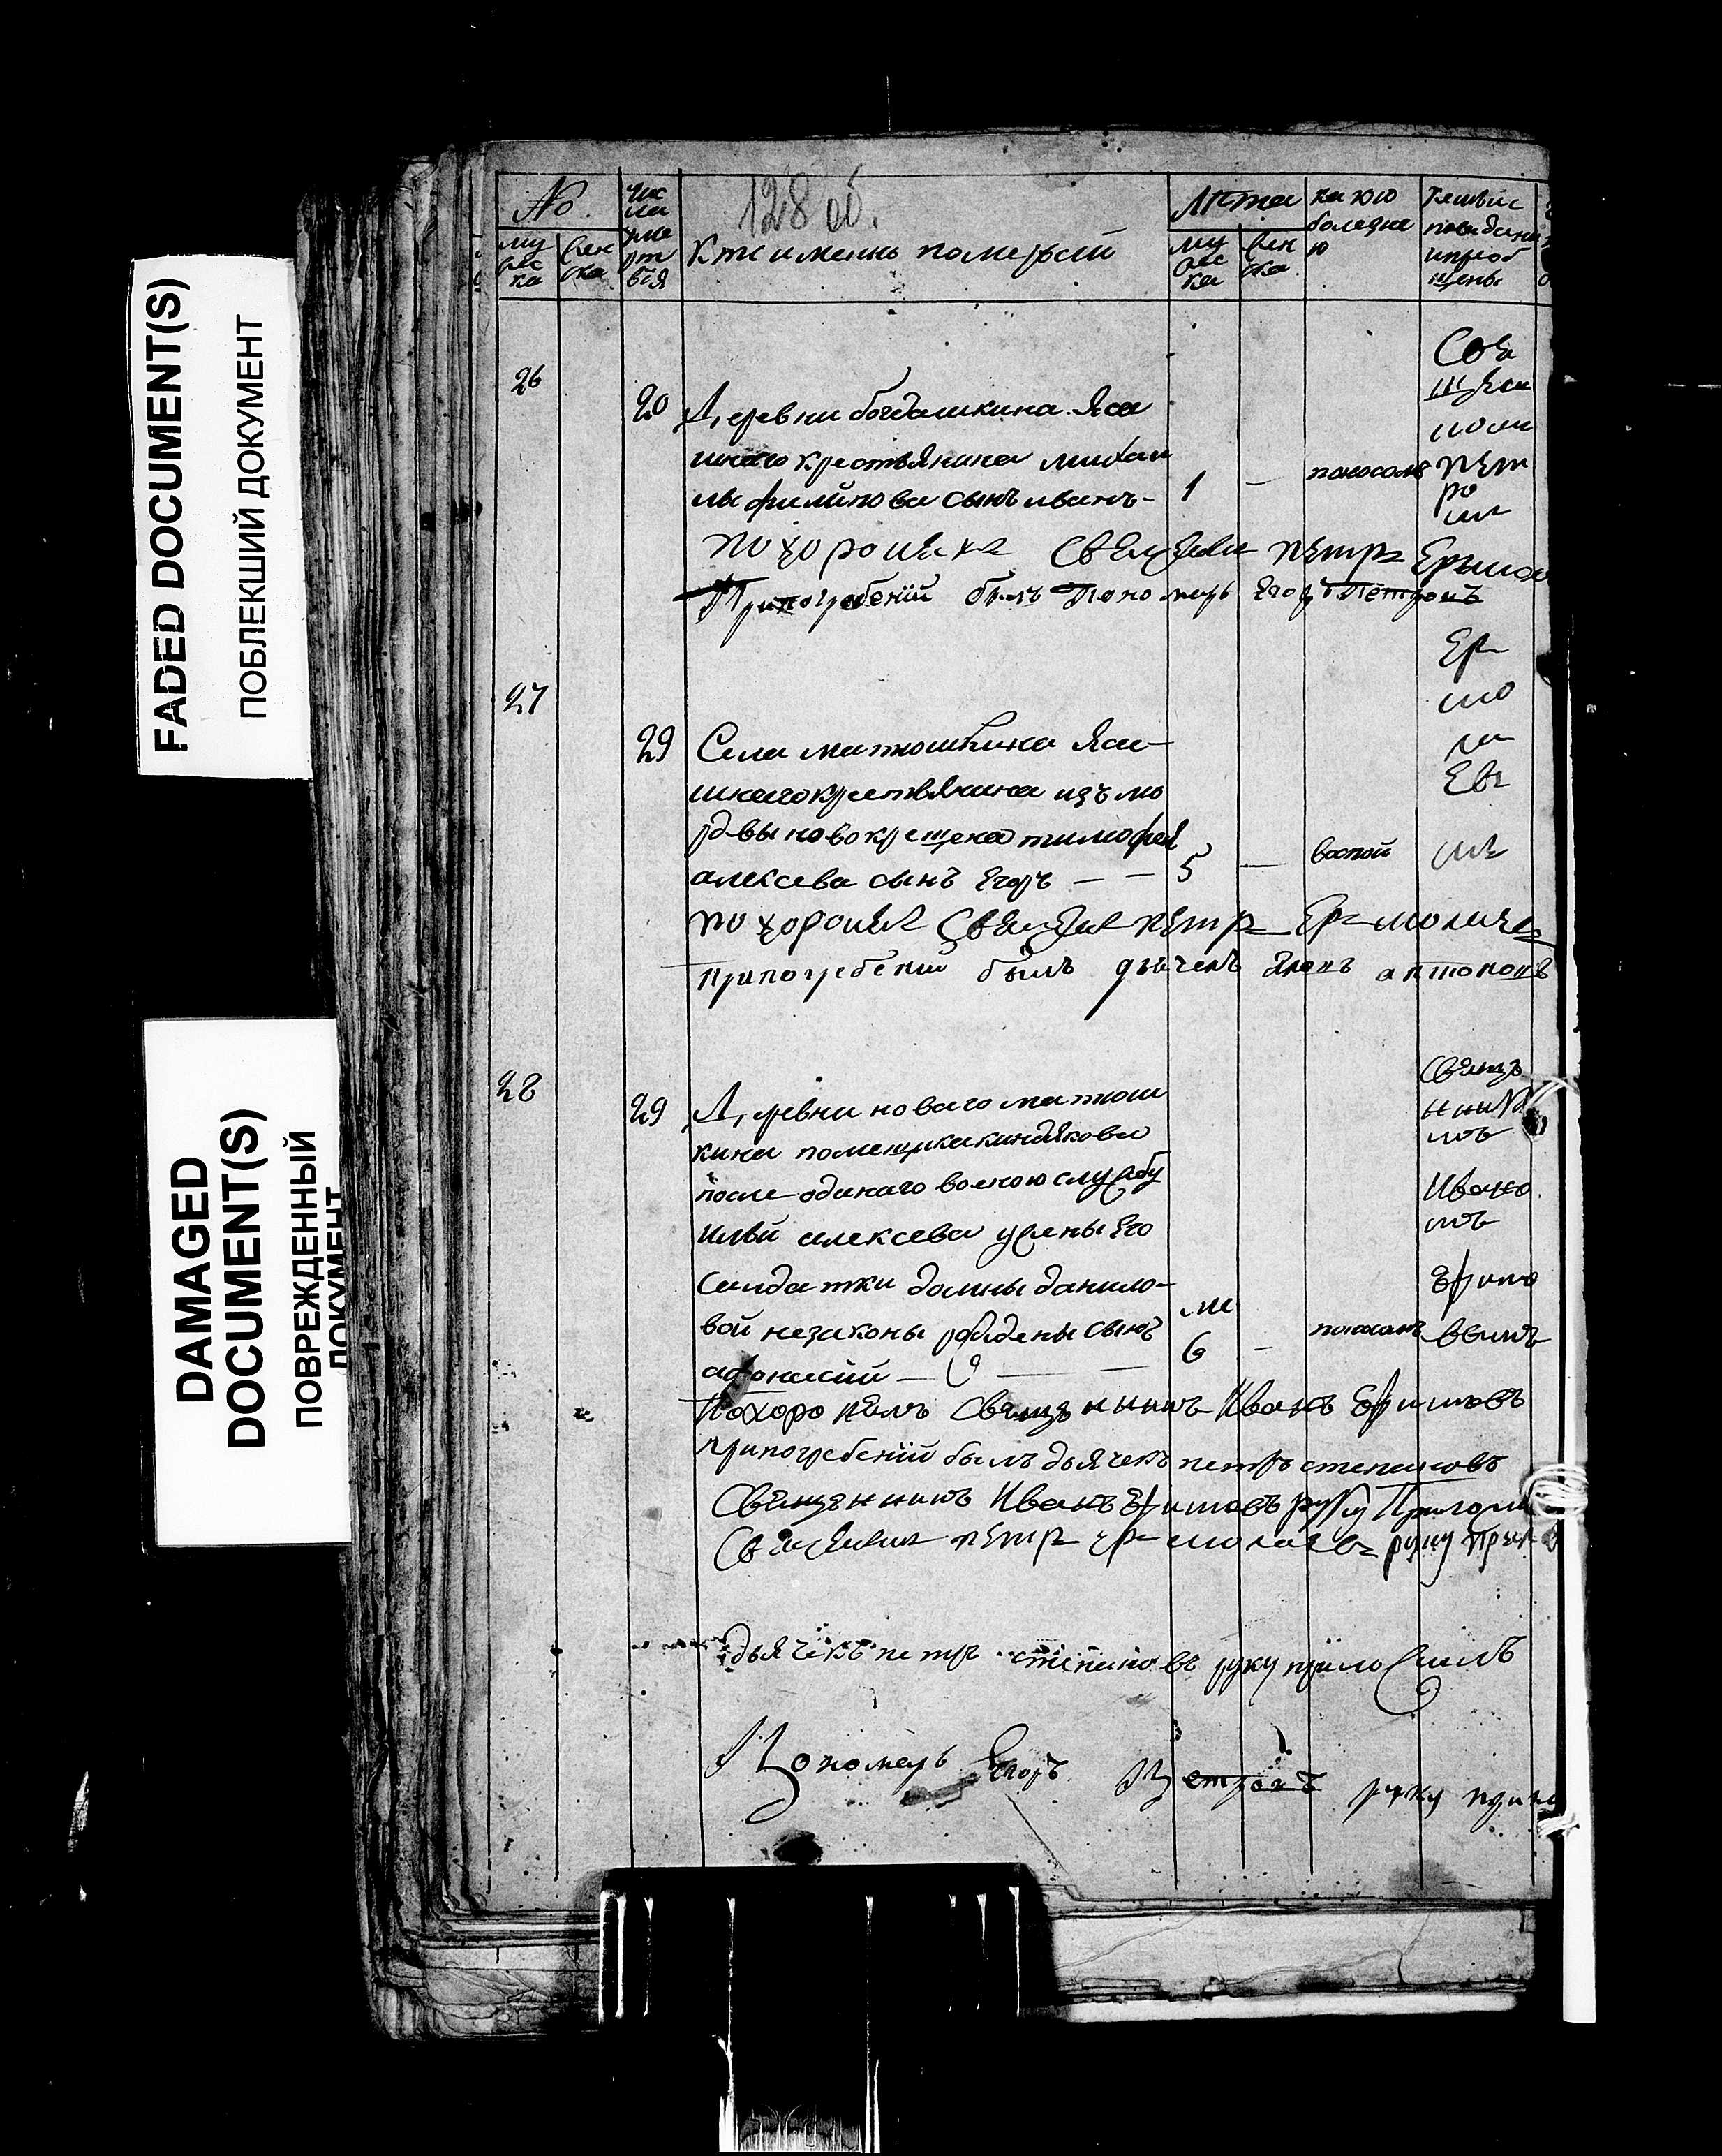 FADED DOCUMENT(S)
ПОБЛЕКШИЙ ДОКУМЕНТ
DAMAGED
DOCUMENT(S)
ПОВРЕЖДЕННЫЙ
ДОКУМЕНТ
128 об.
№
му
жес
ка
жен
ска
чис
ла
уме
рт
вiя
кто имены померый
Лѣта
му
жес
ка
жен
ска
какою
болезне
ю
кемъис
поведаны
ипрiоб
щены
26
20
Деревни богдашкина Яса
шнаго крестьянина михаи
лы филипова сынъ иванъ
1
поносомъ
Свя
щен
ном
пѣт
ро
мъ
похоронилъ Священик пѣтръ Ермол
Припогребенiй былъ Пономарь Егоръ Петровъ
27
29
Села матюшкина Яса
шнагокрестьянина изъ мо
рдвы новокрещена тимофея
алексева сынъ Егоръ
5
воспой
Ер
мо
ла
Евы
мъ
похоронилъ Священик пѣтръ Ермолаев
припогребенiи былъ дьячекъ антоновъ
28
29
Деревни новаго матюш
кина помещикакиндякова
после отданаго военою службу
Ильи алексева ужены Его
салдатки домны данило
вой незаконы рожденыи сынъ
афонасiй
ме
6
поносомъ
Свящѣ
нник
мъ
Ивано
мъ
Ефимо
вымъ
Похоронилъ Священникъ Иванъ Ефимовъ
припогребенiй былъ дьячекъ петръ степановъ
Священникъ Иванъ Ефимовъ руку Прилож
Священик пѣтръ ермолаевъ руку прил
дьячекъ петръ степановъ руку приложилъ
Пономарь Егоръ Петровъ руку прило